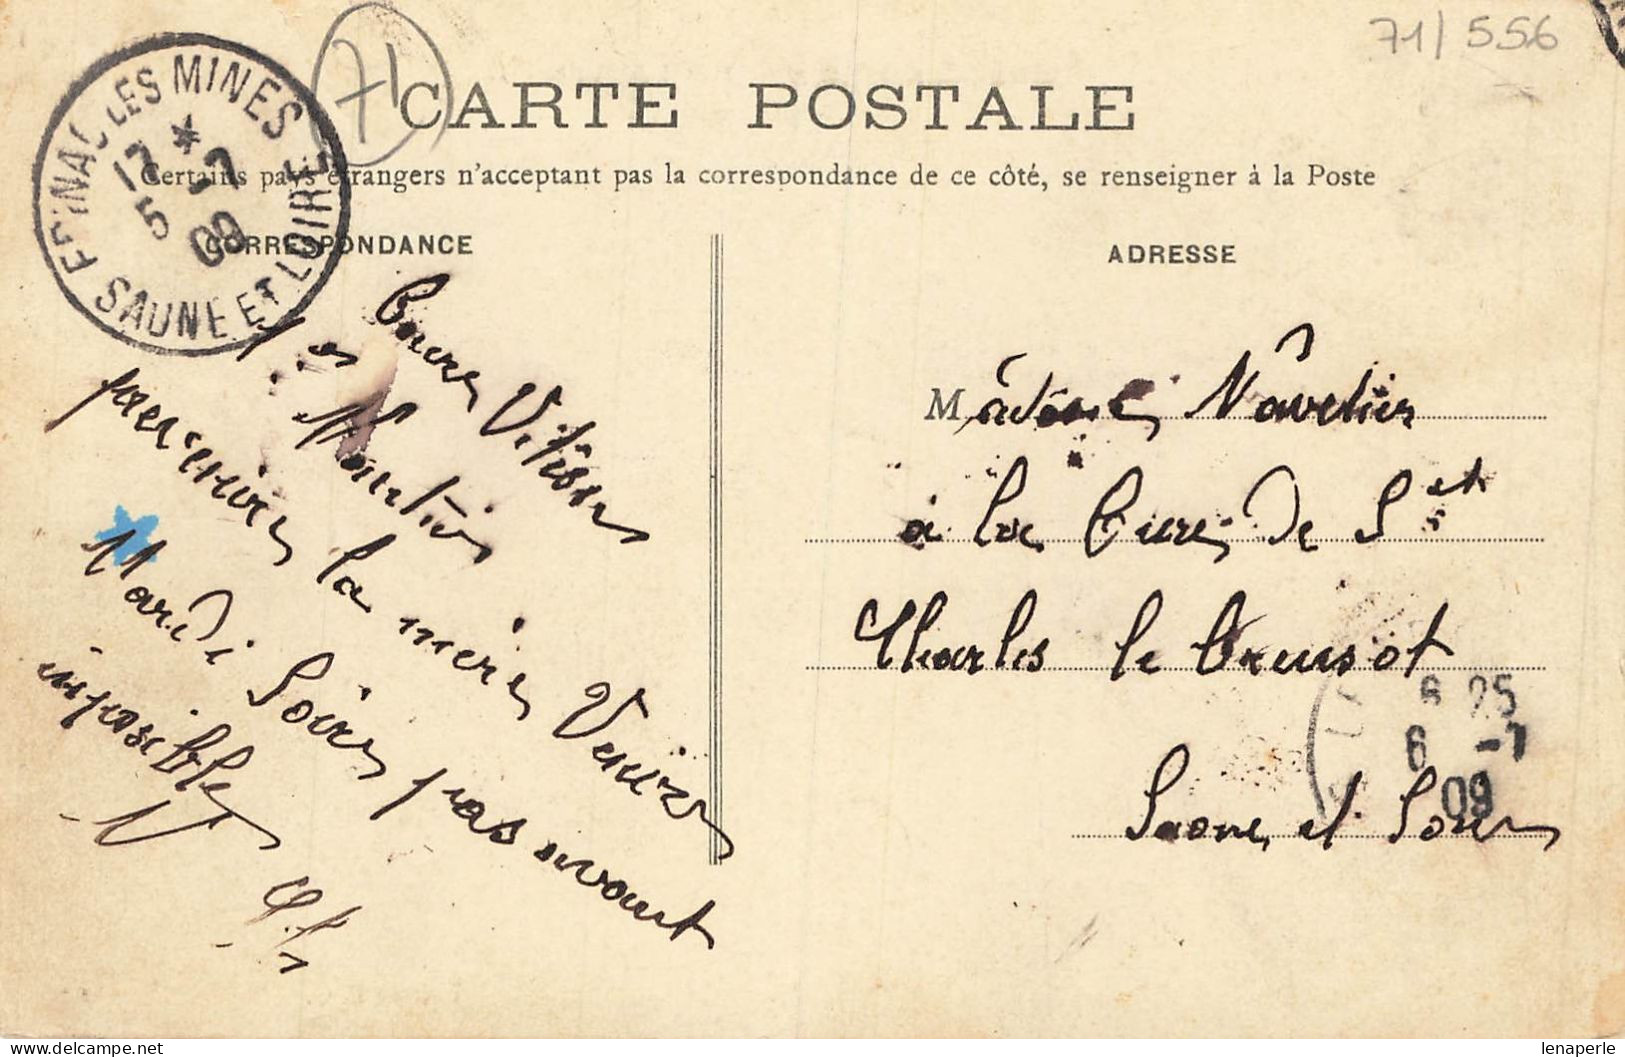 71/556
71
CARTE POSTALE
Certains pays étrangers n'acceptant pas la correspondance de ce côté, se renseigner à la Poste
EPINAC LES MINES
SAONE ET LOIRE
17 *
5 -7
09
CORRESPONDANCE
Bonne
la mère
Mardi Soir pas avant
impossible
ADRESSE
Madame Navelier
à la Cure de St
Charles le Creusot
Saone et Loire
6 25
6 -7
09
lenaperle